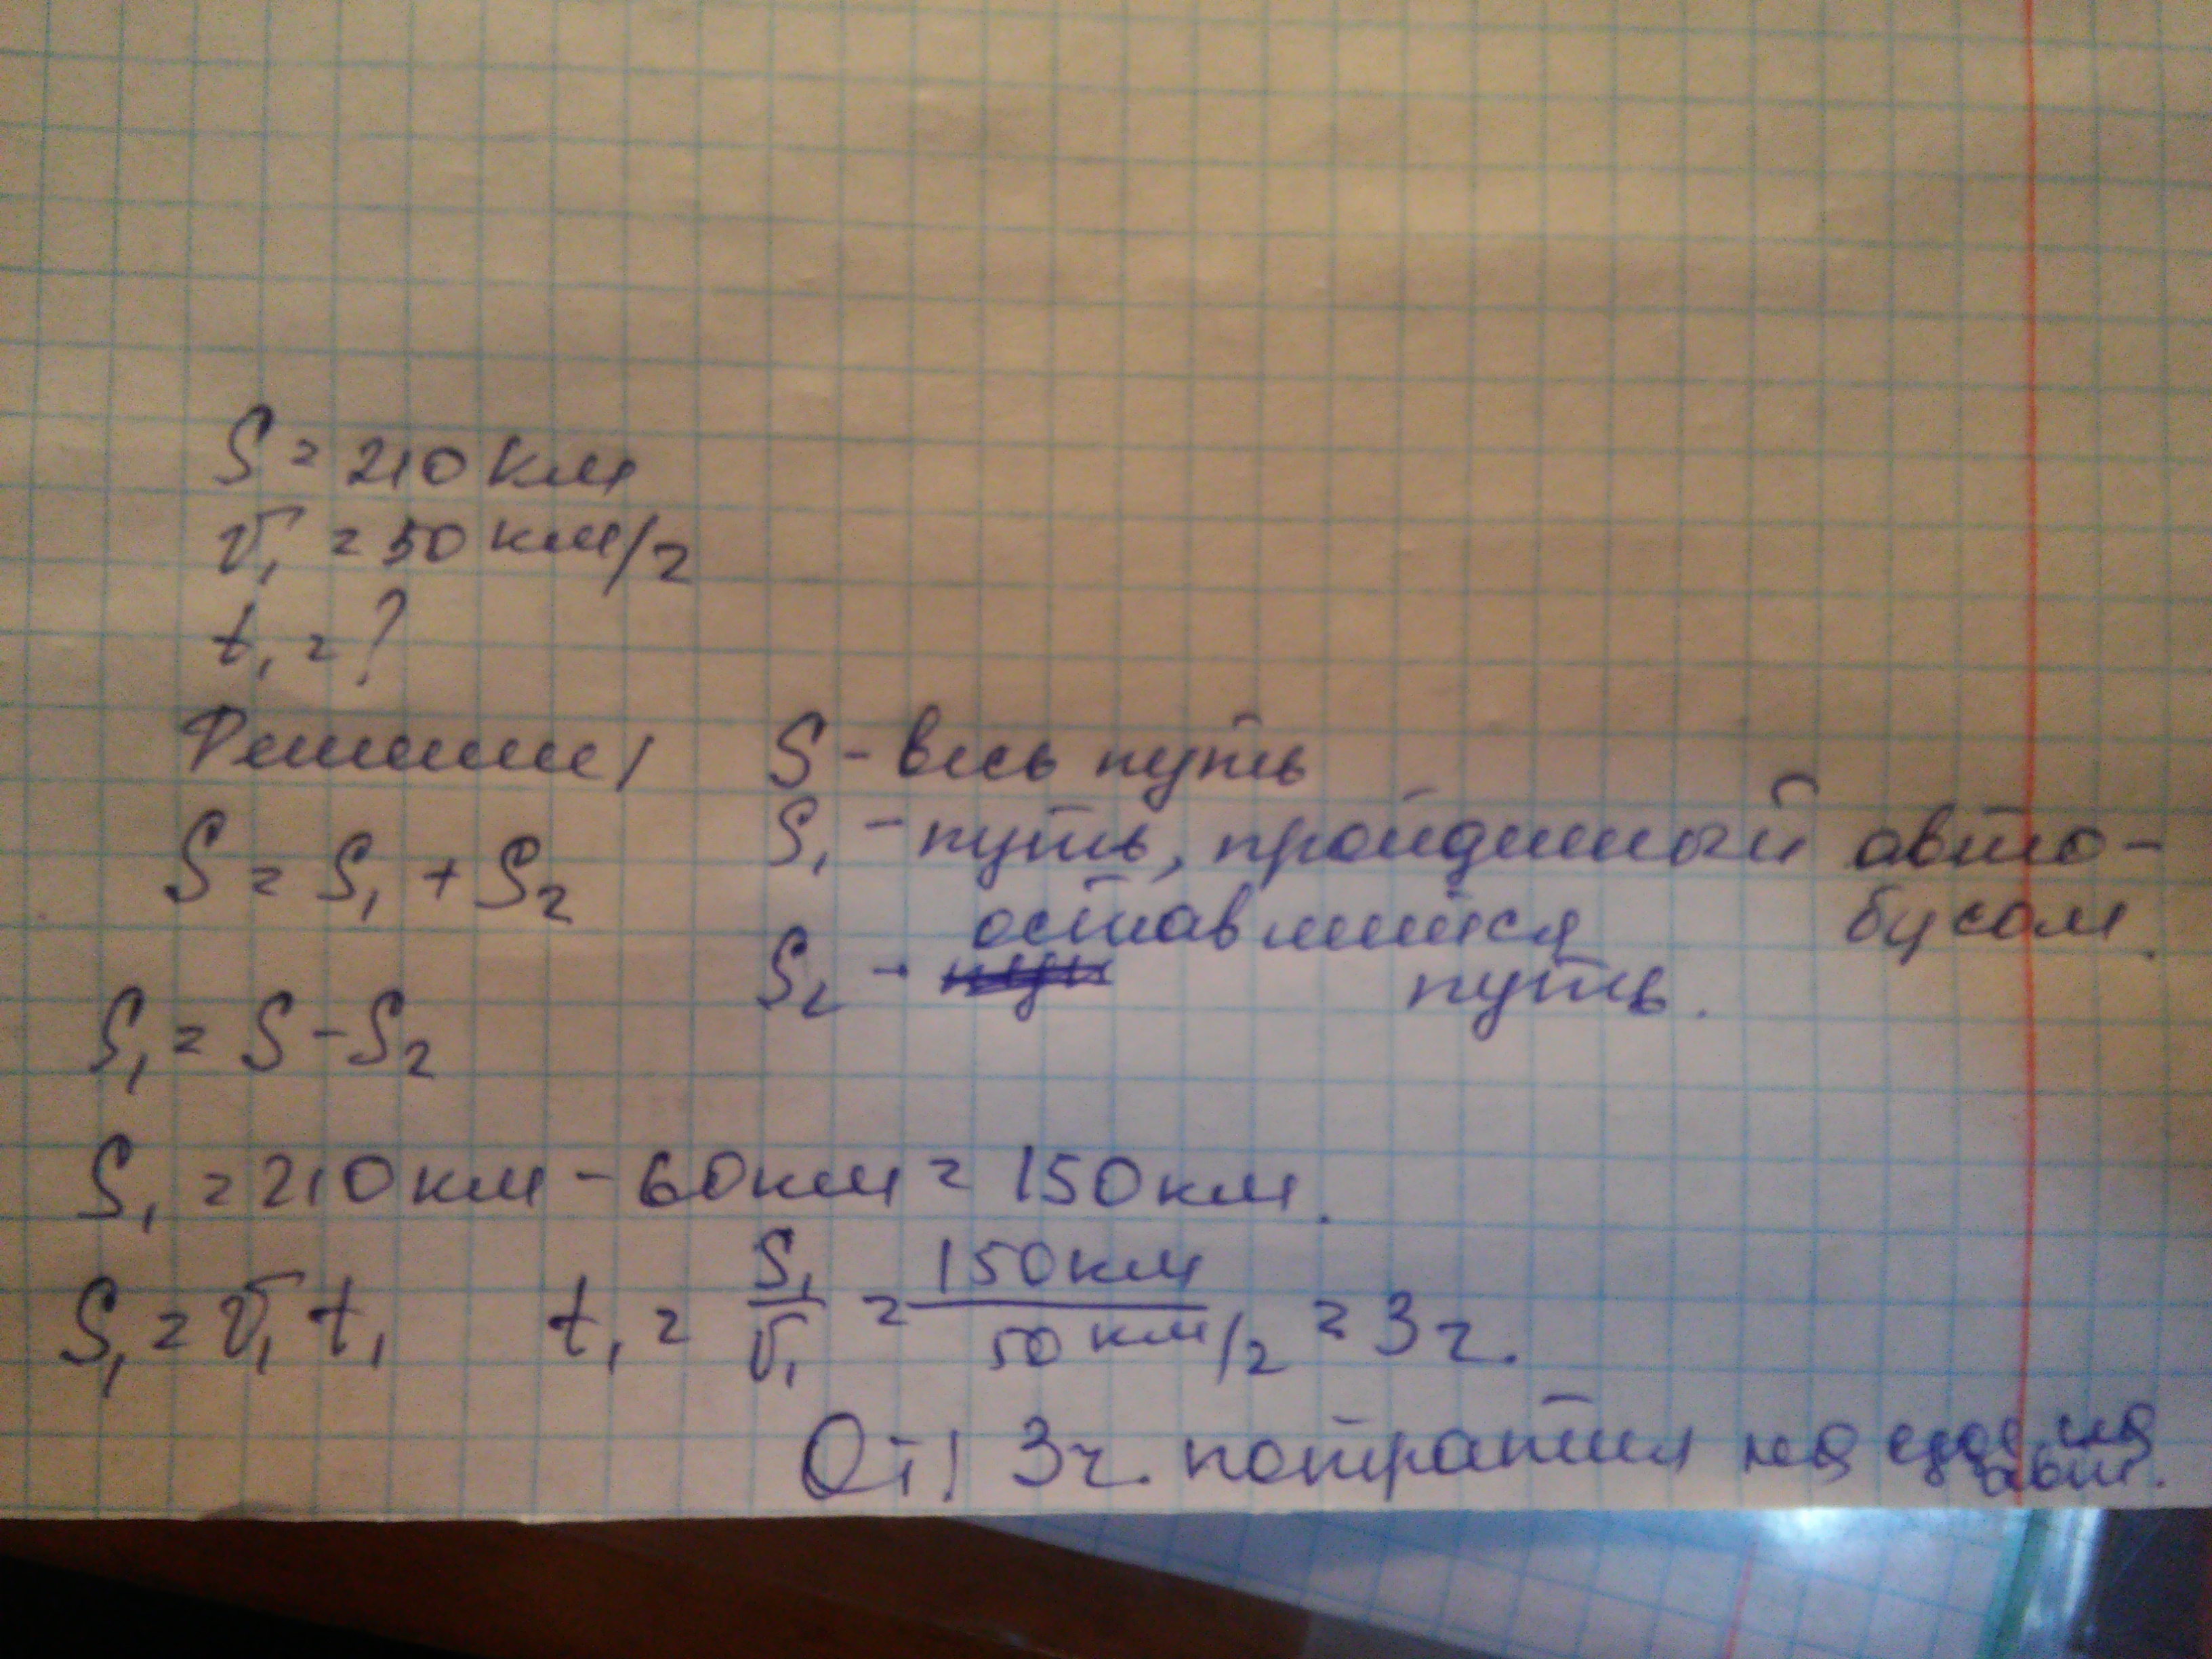 S = 210 км
v₁ = 50 км/ч
t₁ = ?
Решение/
S - весь путь
S = S₁ + S₂
S₁ - путь, пройденный авто-
бусом.
S₂ - оставшийся
путь.
S₁ = S - S₂
S₁ = 210 км - 60 км = 150 км.
S₁ = v₁ t₁ t₁ = S₁/v₁ = 150 км / 50 км/ч = 3 ч.
От/ 3 ч. потратил на на
авт.